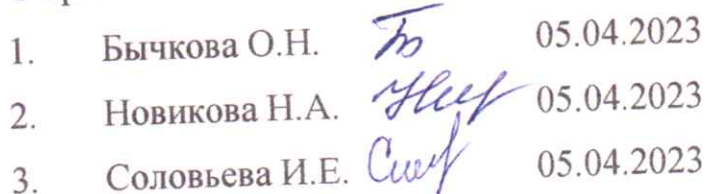 1. Бычкова О.Н. 05.04.2023
2. Новикова Н.А. 05.04.2023
3. Соловьева И.Е. 05.04.2023